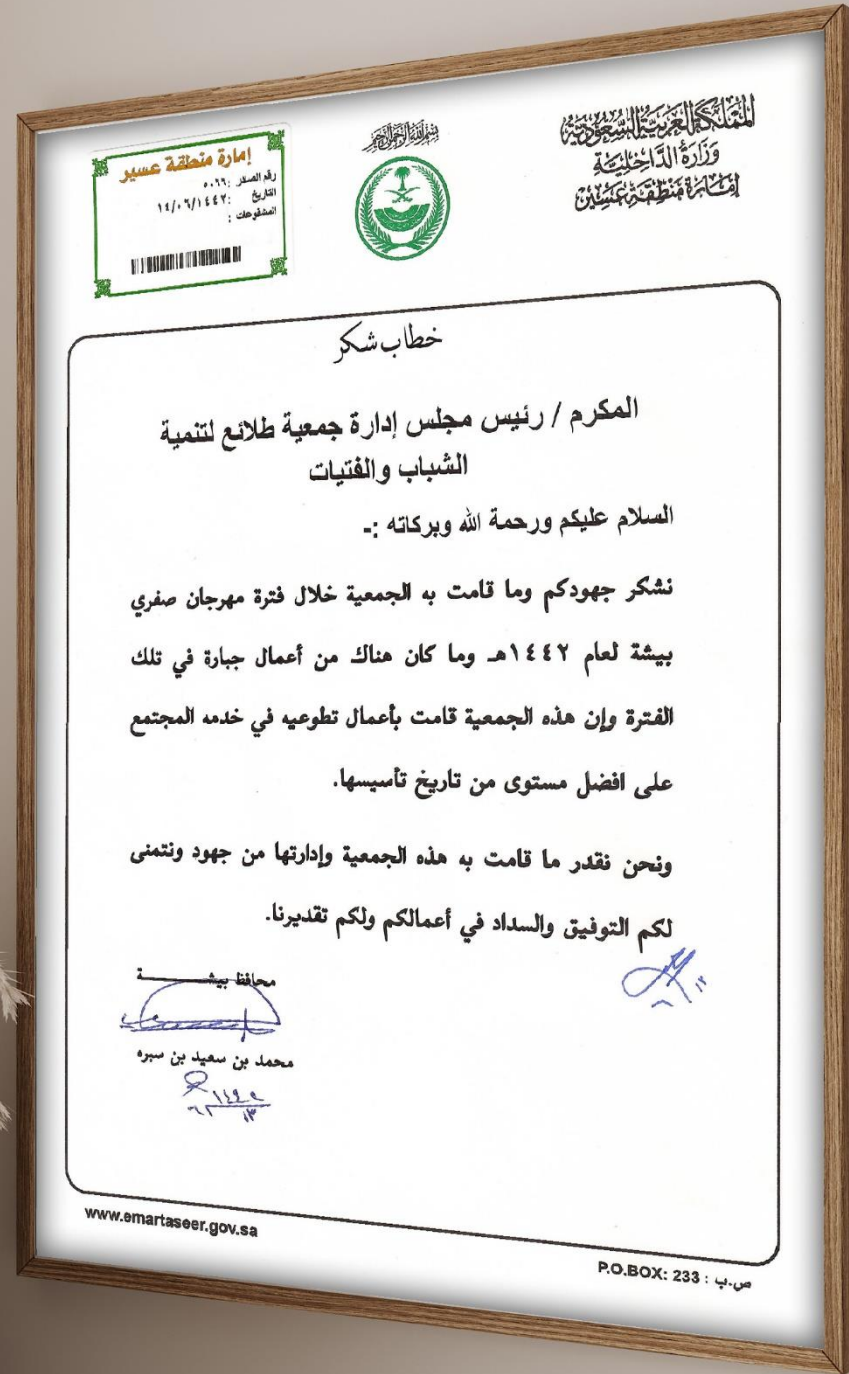 المملكة العربية السعودية
وزارة الداخلية
إمارة منطقة عسير
بسم الله الرحمن الرحيم
إمارة منطقة عسير
رقم الصادر : ٥٠٦٦
التاريخ : ١٤/٠٦/١٤٤٢
المشفوعات :
خطاب شكر
المكرم / رئيس مجلس إدارة جمعية طلائع لتنمية
الشباب والفتيات
السلام عليكم ورحمة الله وبركاته :-
نشكر جهودكم وما قامت به الجمعية خلال فترة مهرجان صفري
بيشة لعام ١٤٤٢هـ وما كان هناك من أعمال جبارة في تلك
الفترة وإن هذه الجمعية قامت بأعمال تطوعيه في خدمه المجتمع
على افضل مستوى من تاريخ تأسيسها.
ونحن نقدر ما قامت به هذه الجمعية وإدارتها من جهود ونتمنى
لكم التوفيق والسداد في أعمالكم ولكم تقديرنا.
محافظ بيشــــــة
محمد بن سعيد بن سبره
www.emartaseer.gov.sa
P.O.BOX: 233 : ص.ب